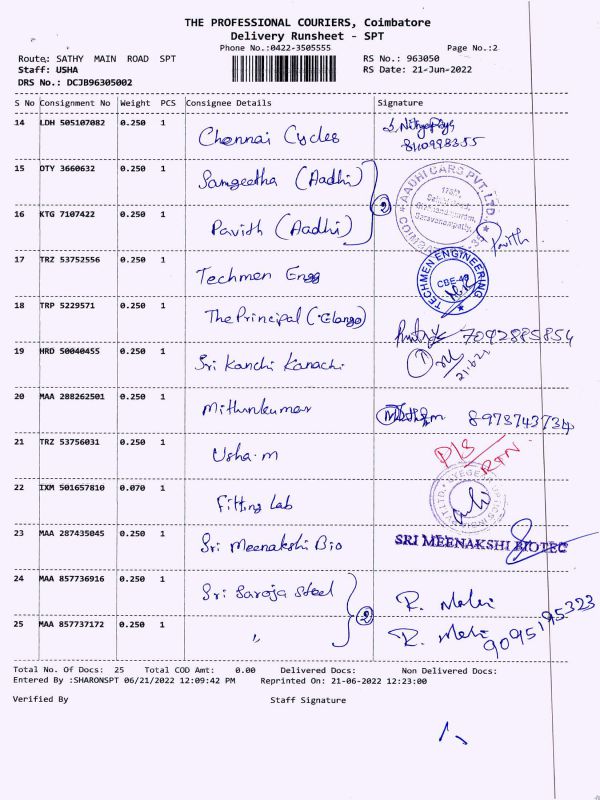 THE PROFESSIONAL COURIERS, Coimbatore
Delivery Runsheet - SPT
Phone No.:0422-3505555 Page No.:2
Route: SATHY MAIN ROAD SPT RS No.: 963050
Staff: USHA RS Date: 21-Jun-2022
DRS No.: DCJB96305002
S No Consignment No Weight PCS Consignee Details Signature
14 LDH 505107082 0.250 1 Chennai Cycles
15 DTY 3660632 0.250 1 Sangeetha (Aadhi) AADHI CARS PVT. LTD.
16 KTG 7107422 0.250 1 Pavith (Aadhi) 2
17 TRZ 53752556 0.250 1 Techmen Engg TECHMEN ENGINEERING CBE-49
18 TRP 5229571 0.250 1 The Principal (Elango) 7042885854
19 HRD 50040455 0.250 1 Sri Kanchi Kamachi
20 MAA 288262501 0.250 1 Mithunkumar 8978743734
21 TRZ 53756031 0.250 1 Usha.M D/B RTN
22 IXM 501657810 0.070 1 Fitting Lab
23 MAA 287435045 0.250 1 Sri Meenakshi Bio SRI MEENAKSHI BIOTEC
24 MAA 857736916 0.250 1 Sri Saroja Steel R.
25 MAA 857737172 0.250 1 " 2 R. 9095195323
Total No. Of Docs: 25 Total COD Amt: 0.00 Delivered Docs: Non Delivered Docs:
Entered By :SHARONSPT 06/21/2022 12:09:42 PM Reprinted On: 21-06-2022 12:23:00
Verified By Staff Signature